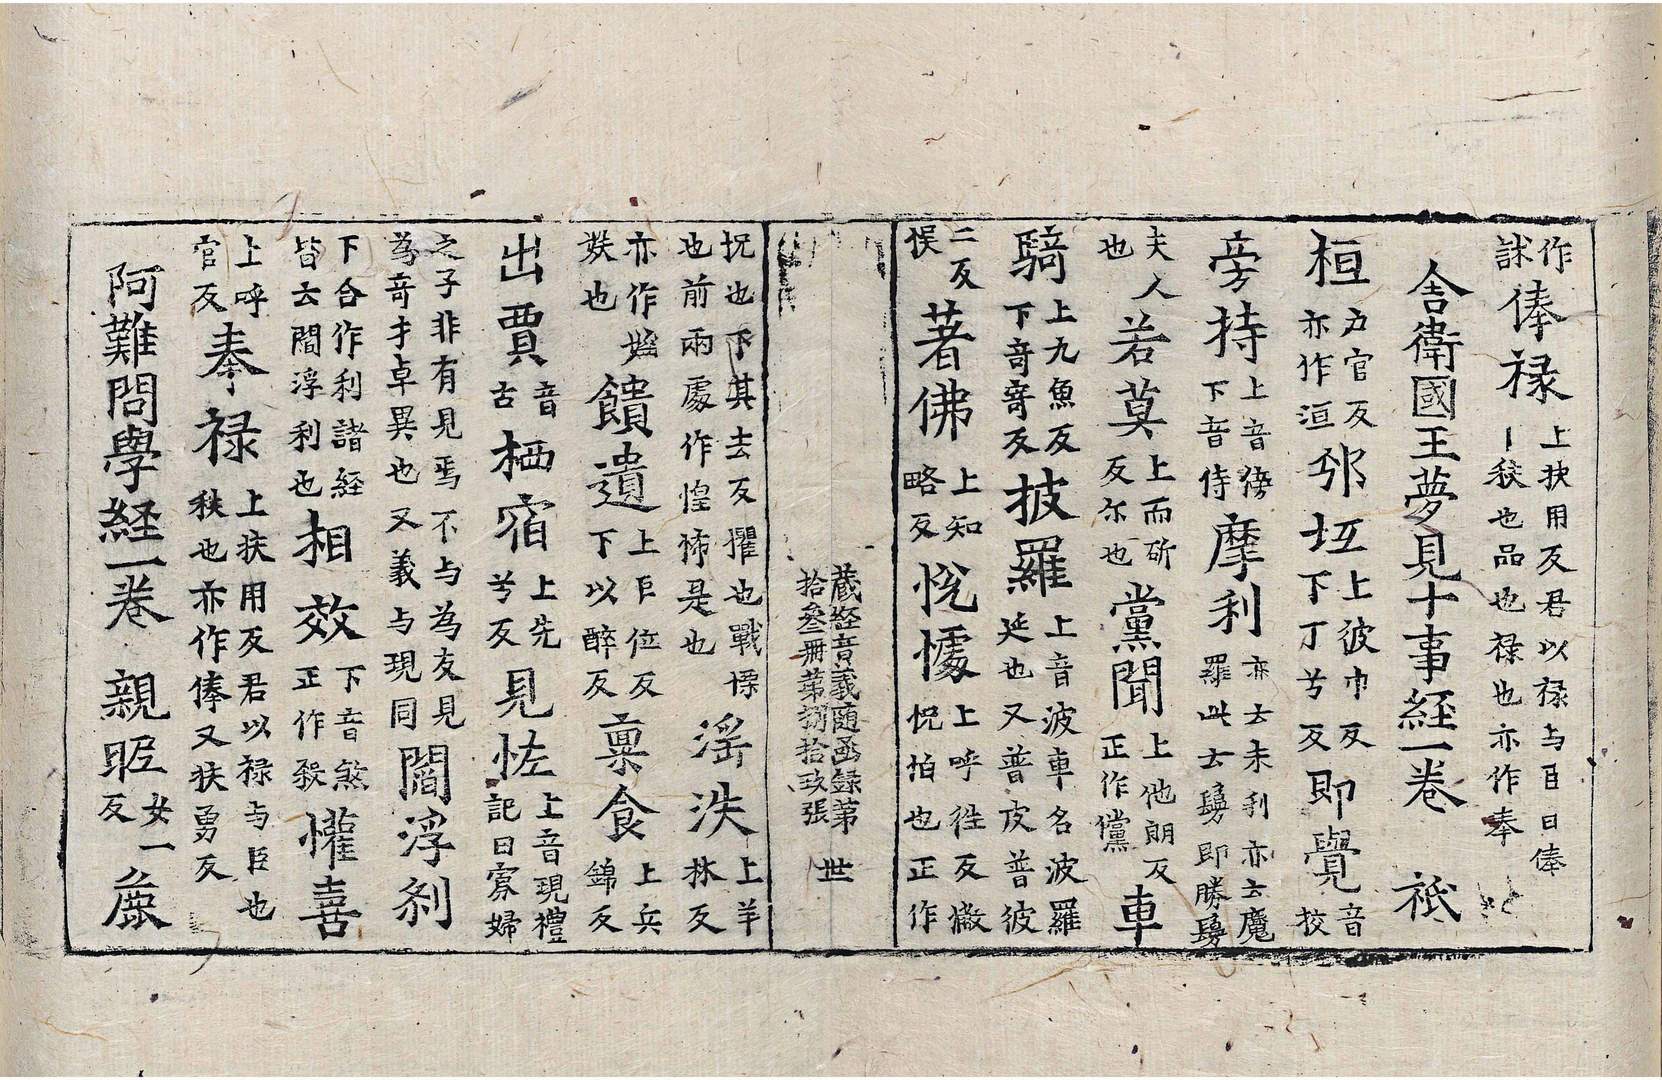 作𧦝俸禄上扶用反君以禄与臣曰俸丨秩也品也禄也亦作奉
舍衛國王夢見十事経一卷 祇
桓力官反亦作洹邠坻上彼巾反下丁兮反即覺音挍
旁持上音傍下音侍摩利亦云末利亦云魔羅此云鬘即勝鬘
夫人也若莫上而斫反尒也黨聞上他朗反正作儻車
騎上九魚反下奇寄反披羅上音波車名波羅延也又普皮普彼
二反悮著佛上知略反恱懅上呼徃反懒怳怕也正作
藏経音義随函録第拾叁册第捌拾玖張 世
怳也下其去反懼也戰慄也前兩處作惶怖是也滛泆上羊林反
亦作婬㛄也饋遺上巨位反下以醉反禀食上兵錦反
出賈音古栖宿上先兮反見恠上音現禮記曰寡婦
之子非有見焉不与為友見為奇才卓異也又義与現同閻浮刹
下合作利諸経皆云閻浮利也相效下音煞正作殺懽喜
上呼官反奉禄上扶用反君以禄与臣也秩也亦作俸又扶勇反
阿難問學経一卷 親昵女一反麁